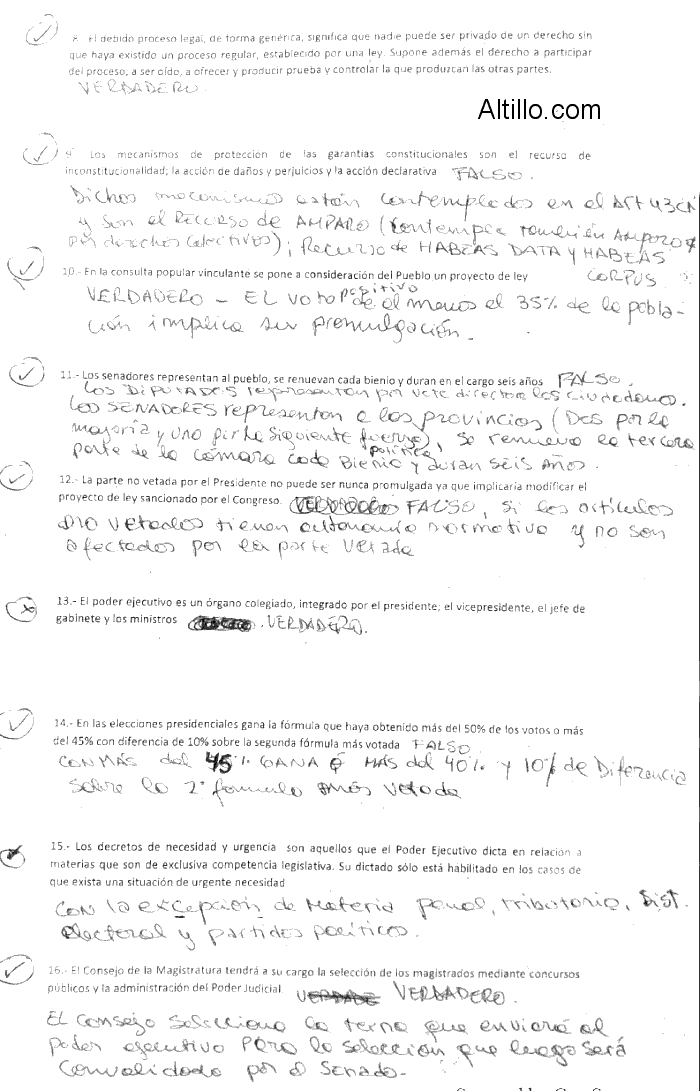 8. El debido proceso legal, de forma genérica, significa que nadie puede ser privado de un derecho sin
que haya existido un proceso regular, establecido por una ley. Supone además el derecho a participar
del proceso, a ser oído, a ofrecer y producir prueba y controlar la que produzcan las otras partes.
VERDADERO.
Altillo.com
9. Los mecanismos de protección de las garantías constitucionales son el recurso de
inconstitucionalidad; la acción de daños y perjuicios y la acción declarativa FALSO.
Dichos mecanismos están contemplados en el Art 43CN
y son el RECURSO de AMPARO (contempla también Amparo
por derechos colectivos); Recurso de HABEAS DATA y HABEAS
CORPUS
10.- En la consulta popular vinculante se pone a consideración del Pueblo un proyecto de ley
VERDADERO - EL voto positivo de al menos el 35% de la pobla-
ción implica su promulgación.
11.- Los senadores representan al pueblo, se renuevan cada bienio y duran en el cargo seis años FALSO.
Los DIPUTADOS representan por voto directo a los ciudadanos.
LOS SENADORES representan a las provincias (Dos por la
mayoría y uno por la siguiente fuerza política), se renueva la tercera
parte de la cámara cada Bienio y duran seis Años.
12.- La parte no vetada por el Presidente no puede ser nunca promulgada ya que implicaría modificar el
proyecto de ley sancionado por el Congreso. VERDADERO FALSO, si los artículos
no vetados tienen autonomía normativa y no son
afectados por la parte vetada
13.- El poder ejecutivo es un órgano colegiado, integrado por el presidente; el vicepresidente, el jefe de
gabinete y los ministros . VERDADERO.
14.- En las elecciones presidenciales gana la fórmula que haya obtenido más del 50% de los votos o más
del 45% con diferencia de 10% sobre la segunda fórmula más votada FALSO
CON MÁS del 45% GANA ó MÁS del 40% y 10% de Diferencia
sobre la 2° formula más votada
15.- Los decretos de necesidad y urgencia son aquellos que el Poder Ejecutivo dicta en relación a
materias que son de exclusiva competencia legislativa. Su dictado sólo está habilitado en los casos de
que exista una situación de urgente necesidad
CON la excepción de Materia penal, tributaria, Sist.
electoral y partidos políticos.
16.- El Consejo de la Magistratura tendrá a su cargo la selección de los magistrados mediante concursos
públicos y la administración del Poder Judicial. VERDADE VERDADERO.
EL consejo selecciona la terna que enviará al
poder ejecutivo PARA la selección que luego será
convalidado por el Senado-